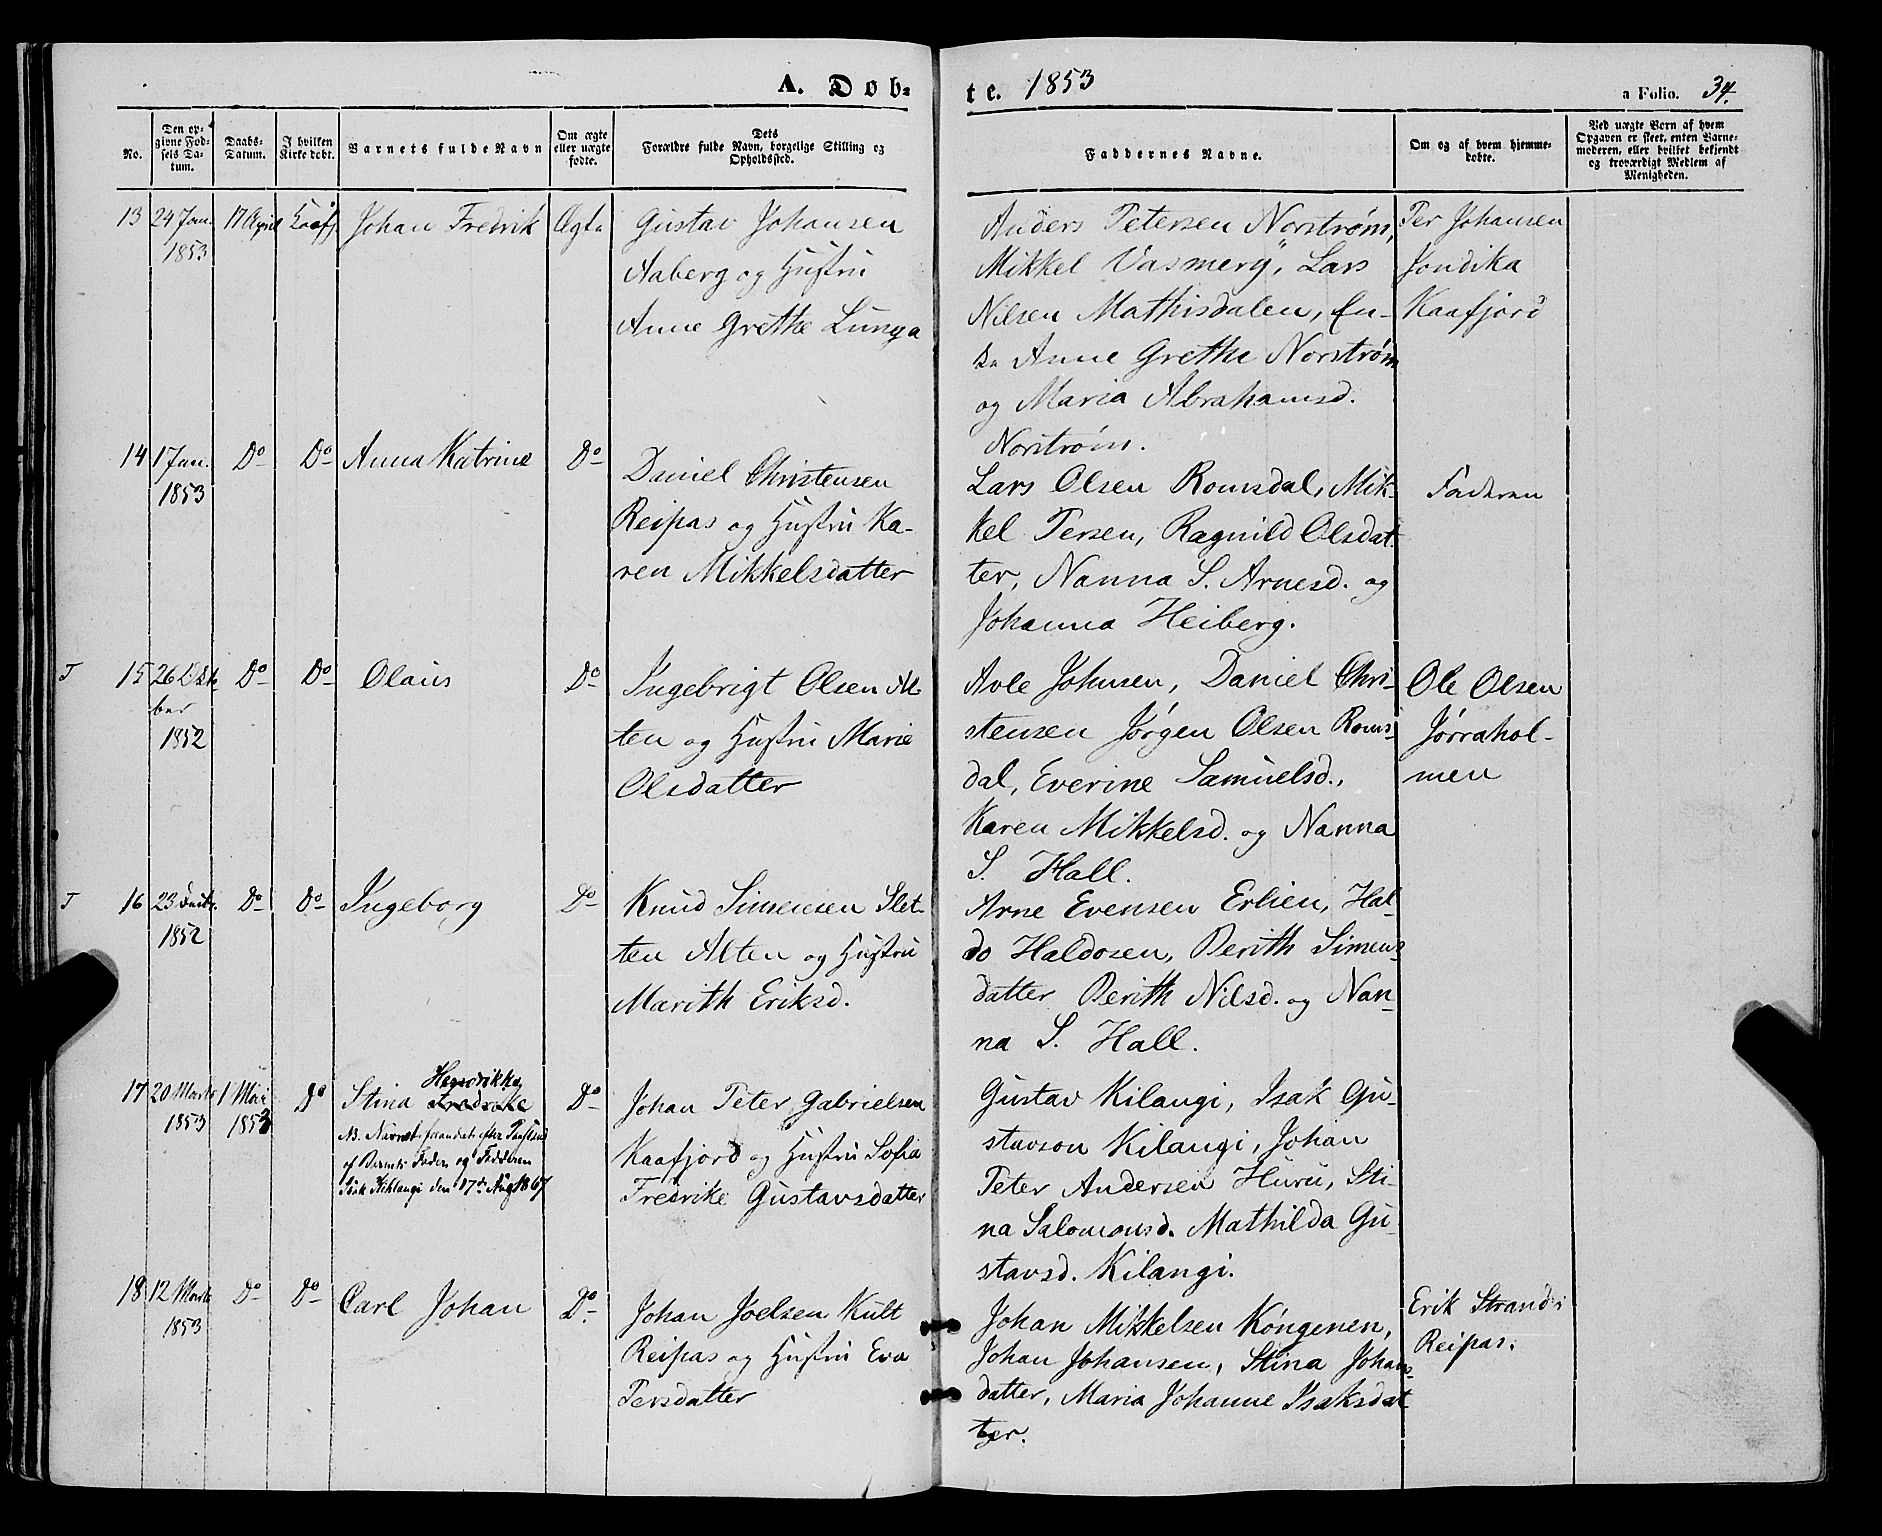 A. Døb-
te. 1853
a Folio. 34.
No.
Den op-
givne Fød-
sels Da-
tum.
Daabs-
Datum.
I hvilken
Kirke døbt.
Barnets fulde Navn
Om ægte
eller uægte
fødte.
Dets
Forældre fulde Navn, borgelige Stilling og
Opholdssted.
Faddernes Navne.
Om og af hvem hjemme-
døbte.
Ved uægte Børn af hvem
Opgaven er skeet, enten Barne-
moderen, eller hvilket bekjendt
og troværdigt Medlem af
Menigheden.
13 24 Jan. 1853
17 April
Kaafj
Johan Fredrik
Ægte
Gustav Johansen
Aaberg og Hustru
Anne Grethe Lunga
Anders Petersen Norstrøm,
Mikkel Lars
Nilsen Mathisdalen, En-
ke Anne Grethe Norstrøm
og Maria Abrahamsd.
Norstrøm.
Per Johansen
Jondika
Kaafjord
14 17 Jan. 1853
Do
Do
Anna Katrine
Do
Daniel Christensen
Reipas og Hustru Ka-
ren Mikkelsdatter
Lars Olsen Romsdal, Mik-
kel Persen, Ragnild Olsdat-
ter, Nanna S. Arnesd. og
Johanna Heiberg.
Faderen
T 15 26 Okto
ber
1852
Do
Do
Olaus
Do
Ingebrigt Olsen Al-
ten og Hustru Marie
Olsdatter
Avle Johnsen, Daniel Chri-
stensen Jørgen Olsen Roms-
dal, Everine Samuelsd.,
Karen Mikkelsd. og Nanna
S. Hall.
Ole Olsen
Jørrahol-
men
T 16 23
1852
Do
Do
Ingeborg
Do
Knud Simensen Slet-
ten Alten og Hustru
Marith Eriksd.
Arne Evensen Erlien, Hal-
do Haldosen, Berith Simens-
datter Berith Nilsd. og Nan-
na S. Hall.
17 20 Marts 1853
1 Mai 1853
Do
Hendrikke
Stina Fredrike
NB. Navnet forandret efter
af Barnets Fader og Fadderen
Isak Kihlangi den 17de Aug 1867
Do
Johan Peter Gabrielsen
Kaafjord og Hustru Sofia
Fredrike Gustavsdatter
Gustav Kilangi, Isak Gu-
stavson Kilangi, Johan
Peter Andersen Huru, Sti-
na Salomonsd. Mathilda Gu-
stavsd. Kilangi.
18 12 Marts 1853
Do
Do
Carl Johan
Do.
Johan Joelsen Kult
Reipas og Hustru Eva
Persdatter
Johan Mikkelsen Köngenen,
Johan Johansen, Stina Johans-
datter, Maria Johanne Isaksdat-
ter.
Erik Strand i
Reipas.